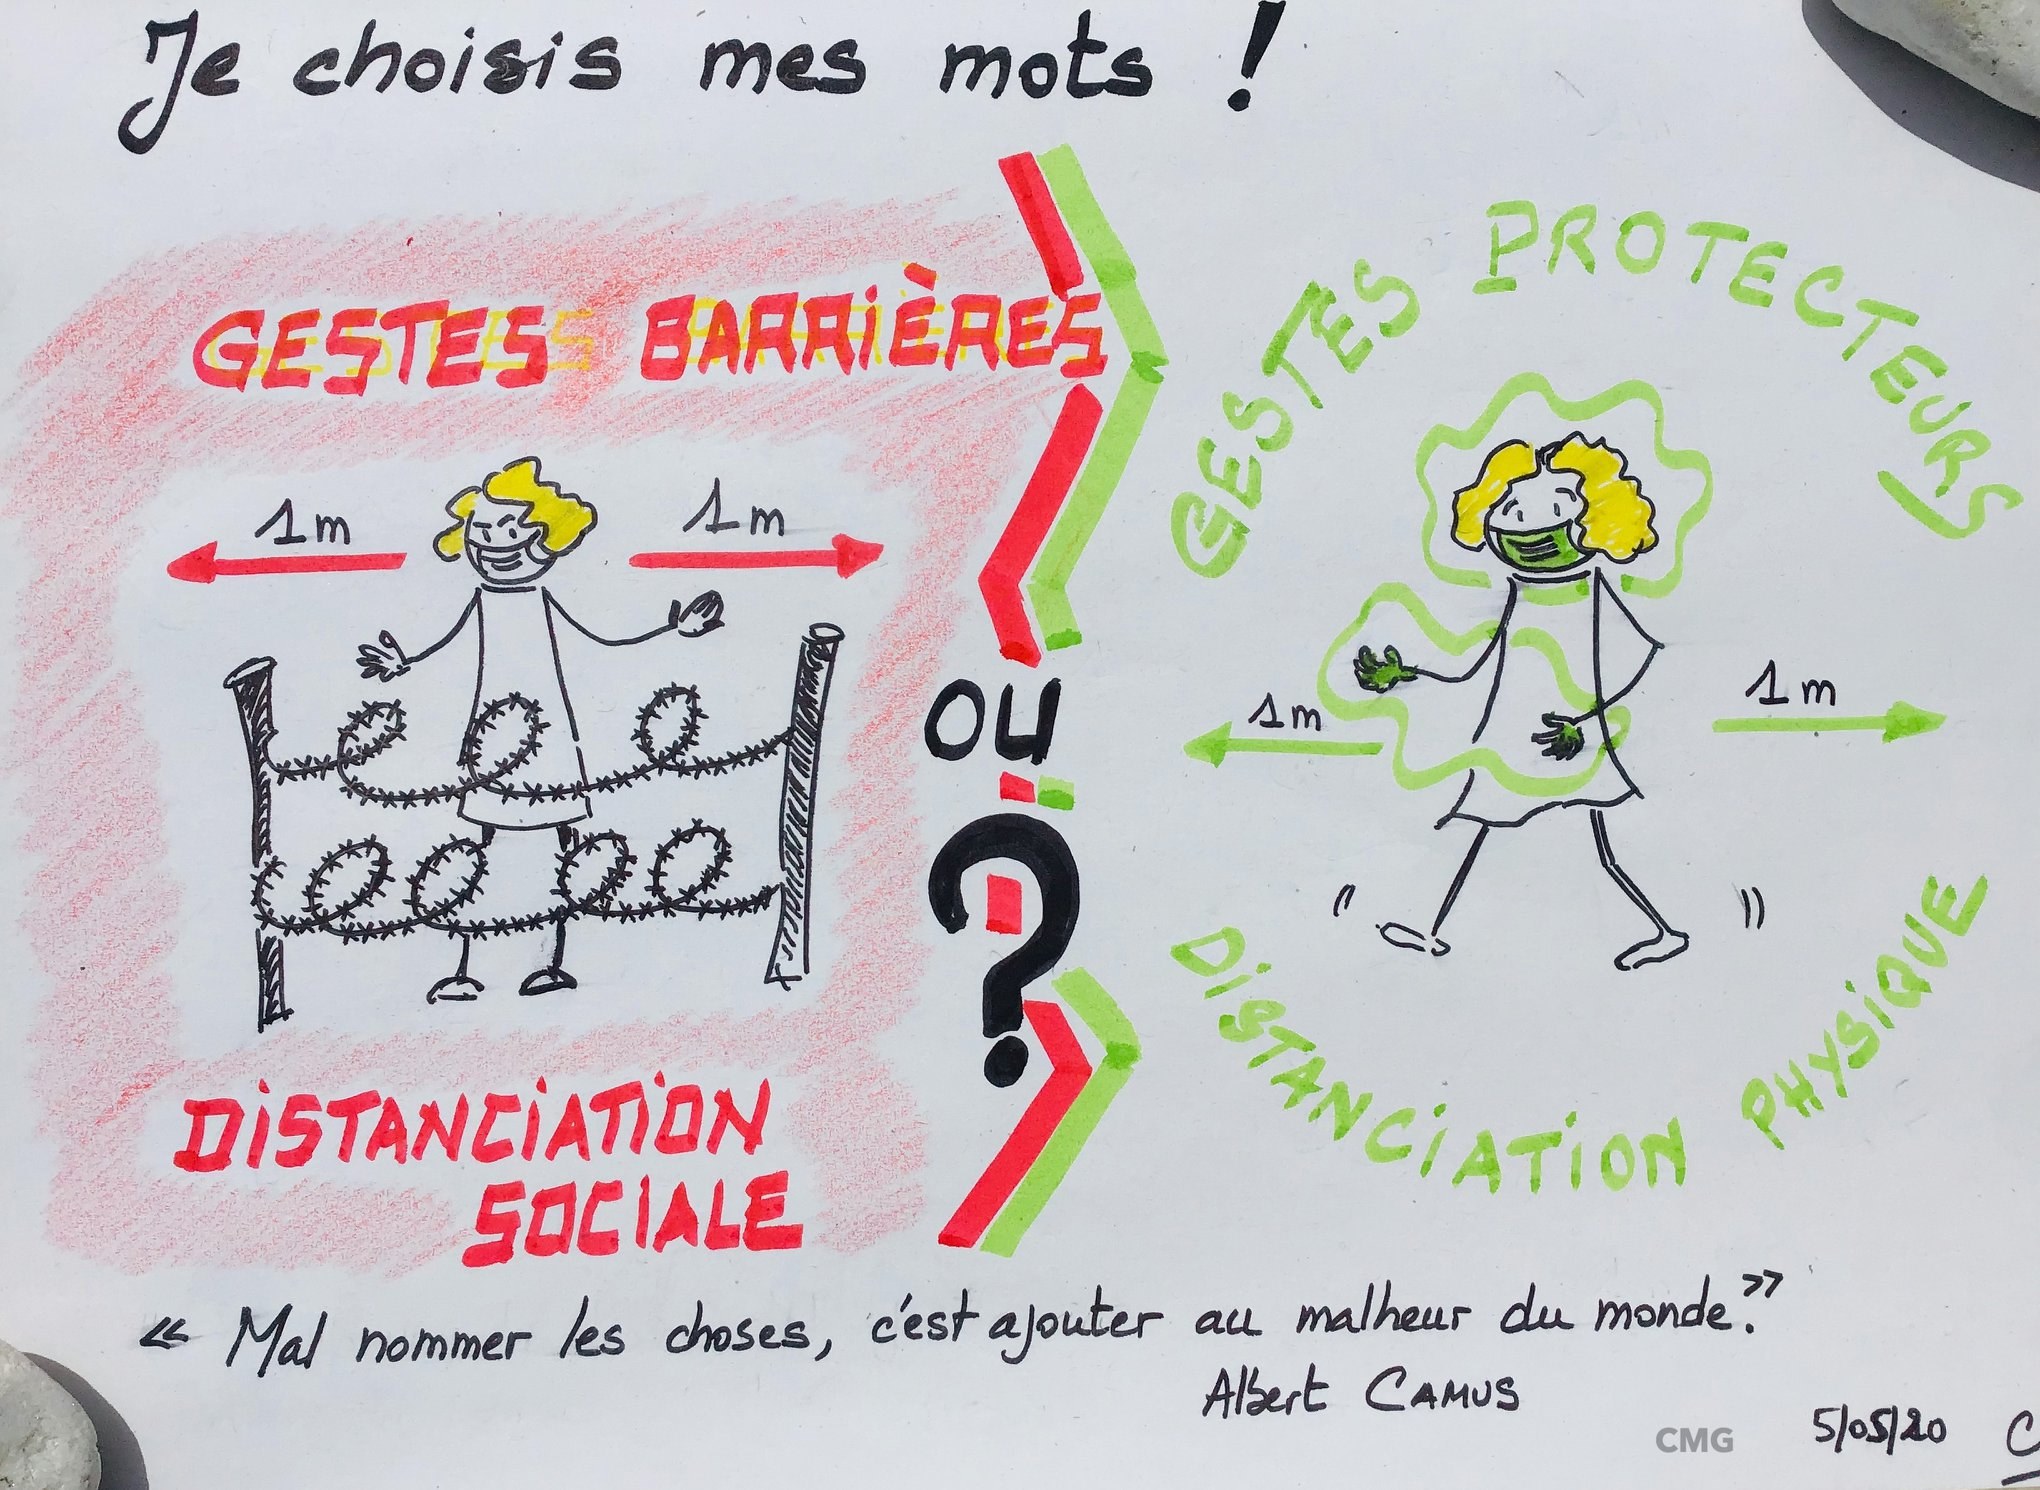 Je choisis mes mots !
GESTES BARRIÈRES
1m 1m
DISTANCIATION
SOCIALE
OU
?
GESTES PROTECTEURS
1m 1m
DISTANCIATION PHYSIQUE
« Mal nommer les choses, c'est ajouter au malheur du monde. »
Albert CAMUS
CMG 5/05/20